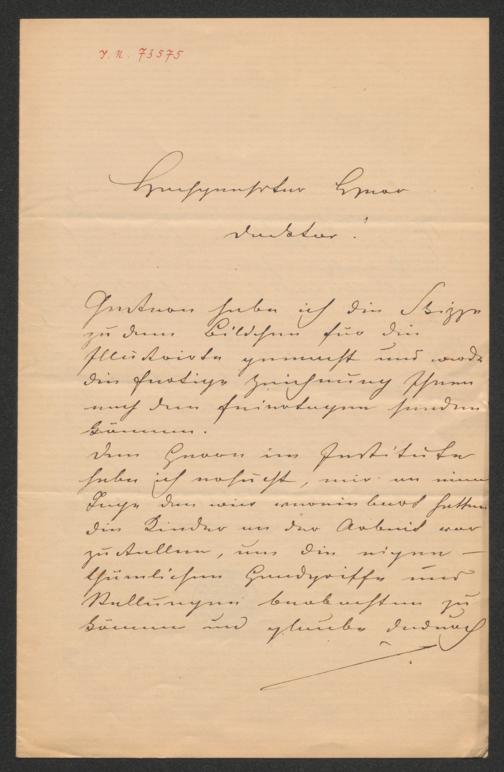 J. N. 73575
Hochgeehrter Herr
Doktor!
Gestern habe ich die Skizze
zu dem Bildchen für die
Illustrirte gemacht und werde
die fertige Zeichnung Ihnen
nach den Feiertagen senden
können.
Den Herrn im Institute
habe ich ersucht, mir an einem
Tage den wir vereinbart hatten
die Kinder an der Arbeit vor
zustellen, um die eigen-
thümlichen Handgriffe und
Stellungen beobachten zu
können und glaube dadurch